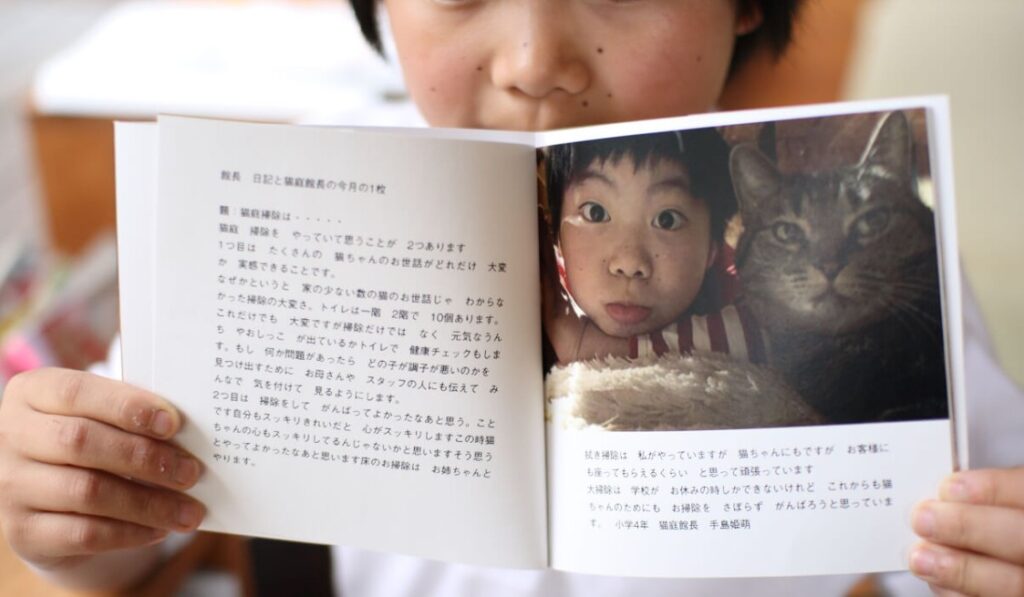 館長　日記と猫庭館長の今月の1枚
題：猫庭掃除は・・・・・
猫庭　掃除を　やっていて思うことが　2つあります
1つ目は　たくさんの　猫ちゃんのお世話がどれだけ　大変
か　実感できることです。
なぜかというと　家の少ない数の猫のお世話じゃ　わからな
かった掃除の大変さ。トイレは一階　2階で　10個あります。
これだけでも　大変ですが掃除だけでは　なく　元気なうん
ち　やおしっこ　が出ているかトイレで　健康チェックもしま
す。もし　何か問題があったら　どの子が調子が悪いのかを
見つけ出すために　お母さんや　スタッフの人にも伝えて　み
んなで　気を付けて　見るようにします。
2つ目は　掃除をして　がんばってよかったなあと思う。こと
です自分もスッキリきれいだと　心がスッキリしますこの時猫
ちゃんの心もスッキリしてるんじゃないかと思いますそう思う
とやってよかったなあと思います床のお掃除は　お姉ちゃんと
やります。
拭き掃除は　私がやっていますが　猫ちゃんにもですが　お客様に
も座ってもらえるくらい　と思って頑張っています
大掃除は　学校が　お休みの時しかできないけれど　これからも猫
ちゃんのためにも　お掃除を　さぼらず　がんばろうと思っていま
す。　小学4年　猫庭館長　手島姫萌